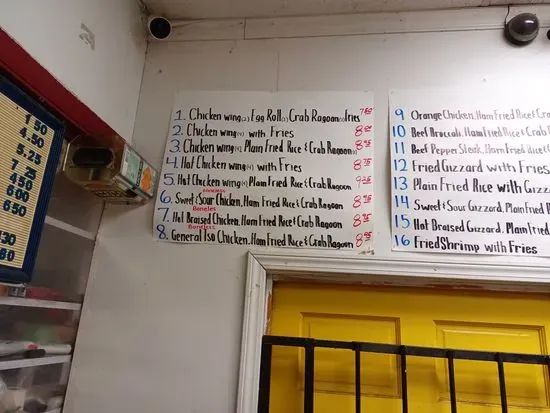 1. Chicken wing(2) Egg Roll(1) Crab Ragoon(1) Fries 7.50
2 Chicken wing(4) with Fries
3. Chicken wing(4) Plain Fried Rice & Crab Ragoon
4. Hot Chicken wing(4) with Fries
5. Hot Chicken wing(4) Plain Fried Rice & Crab Ragoon
Boneless
6. Sweet & Sour Chicken. Ham Fried Rice & Crab Ragoon
7. Hot Braised Chicken. Ham Fried Rice & Crab Ragoon
Boneles
8. General Tso Chicken. Ham Fried Rice & Crab Ragoon
9 Orange Chicken. Ham Fried Rice & Cra
10 Beef Broccoli. Ham Fried Rice & C
11 Beef Pepper Steak. Ham Fried Rice &
12 Fried Gizzard with Fries
13 Plain Fried Rice with Gizz
14 Sweet & Sour Gizzard. Plain Fried R
15 Hot Braised Gizzard. Plain Fried
16 Fried Shrimp with Fries
1.50
4.50
5.25
4.50
6.00
6.50